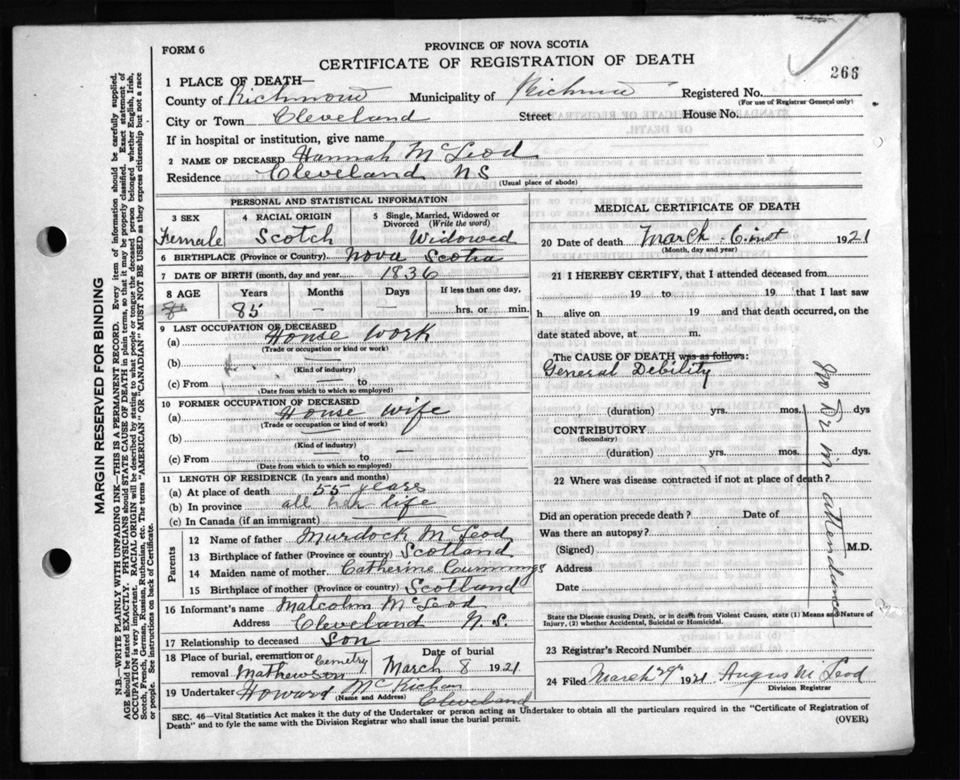 FORM 6
PROVINCE OF NOVA SCOTIA
CERTIFICATE OF REGISTRATION OF DEATH
266
1 PLACE OF DEATH—
County of Richmond Municipality of Richmond Registered No.
(For use of Registrar General only)
City or Town Cleveland Street House No.
If in hospital or institution, give name
2 NAME OF DECEASED Hannah McLeod
Residence Cleveland NS
(Usual place of abode)
PERSONAL AND STATISTICAL INFORMATION
3 SEX 4 RACIAL ORIGIN 5 Single, Married, Widowed or Divorced (Write the word)
Female Scotch Widowed
6 BIRTHPLACE (Province or Country) Nova Scotia
7 DATE OF BIRTH (month, day and year) 1836
8 AGE Years Months Days If less than one day,
85 — hrs. or min.
9 LAST OCCUPATION OF DECEASED
(a) House Work
(Trade or occupation or kind or work)
(b) —
(Kind of industry)
(c) From — to
(Date from which to which so employed)
10 FORMER OCCUPATION OF DECEASED
(a) House wife
(Trade or occupation or kind or work)
(b) —
(Kind of industry)
(c) From — to —
(Date from which to which so employed)
11 LENGTH OF RESIDENCE (In years and months)
(a) At place of death 55 years
(b) In province all her life
(c) In Canada (if an immigrant) —
Parents
12 Name of father Murdock McLeod
13 Birthplace of father (Province or country) Scotland
14 Maiden name of mother Catherine Cummings
15 Birthplace of mother (Province or country) Scotland
16 Informant's name Malcolm McLeod
Address Cleveland N.S.
17 Relationship to deceased Son
18 Place of burial, cremation or removal Mathewson Cemetry
Date of burial March 8 1921
19 Undertaker Howard McRichan
(Name and Address) Cleveland
MEDICAL CERTIFICATE OF DEATH
20 Date of death March 6 inst 1921
(Month, day and year)
21 I HEREBY CERTIFY, that I attended deceased from
19 to 19 that I last saw
h alive on 19 and that death occurred, on the
date stated above, at m.
The CAUSE OF DEATH was as follows:
General Debility
(duration) yrs. mos. dys
CONTRIBUTORY
(Secondary)
(duration) yrs. mos. dys.
No Dr in attendance
22 Where was disease contracted if not at place of death?
Did an operation precede death? Date of
Was there an autopsy?
(Signed) M.D.
Address
Date
State the Disease causing Death, or in death from Violent Causes, state (1) Means and Nature of
Injury, (2) whether Accidental, Suicidal or Homicidal.
23 Registrar's Record Number
24 Filed March 1921 Angus McLeod
Division Registrar
SEC. 46—Vital Statistics Act makes it the duty of the Undertaker or person acting as Undertaker to obtain all the particulars required in the "Certificate of Registration of
Death" and to fyle the same with the Division Registrar who shall issue the burial permit.
(OVER)
MARGIN RESERVED FOR BINDING
N.B.—WRITE PLAINLY, WITH UNFADING INK—THIS IS A PERMANENT RECORD. Every item of information should be carefully supplied.
AGE should be stated EXACTLY. PHYSICIANS should STATE CAUSE OF DEATH in plain terms, so that it may be properly classified. Exact statement of
OCCUPATION is very important. RACIAL ORIGIN will be described by stating to what people or tongue the deceased person belonged whether English, Irish,
Scotch, French, German, Russian, Ruthenian, etc. The terms "AMERICAN" OR "CANADIAN" MUST NOT BE USED as they express citizenship but not a race
or people. See instructions on back of Certificate.